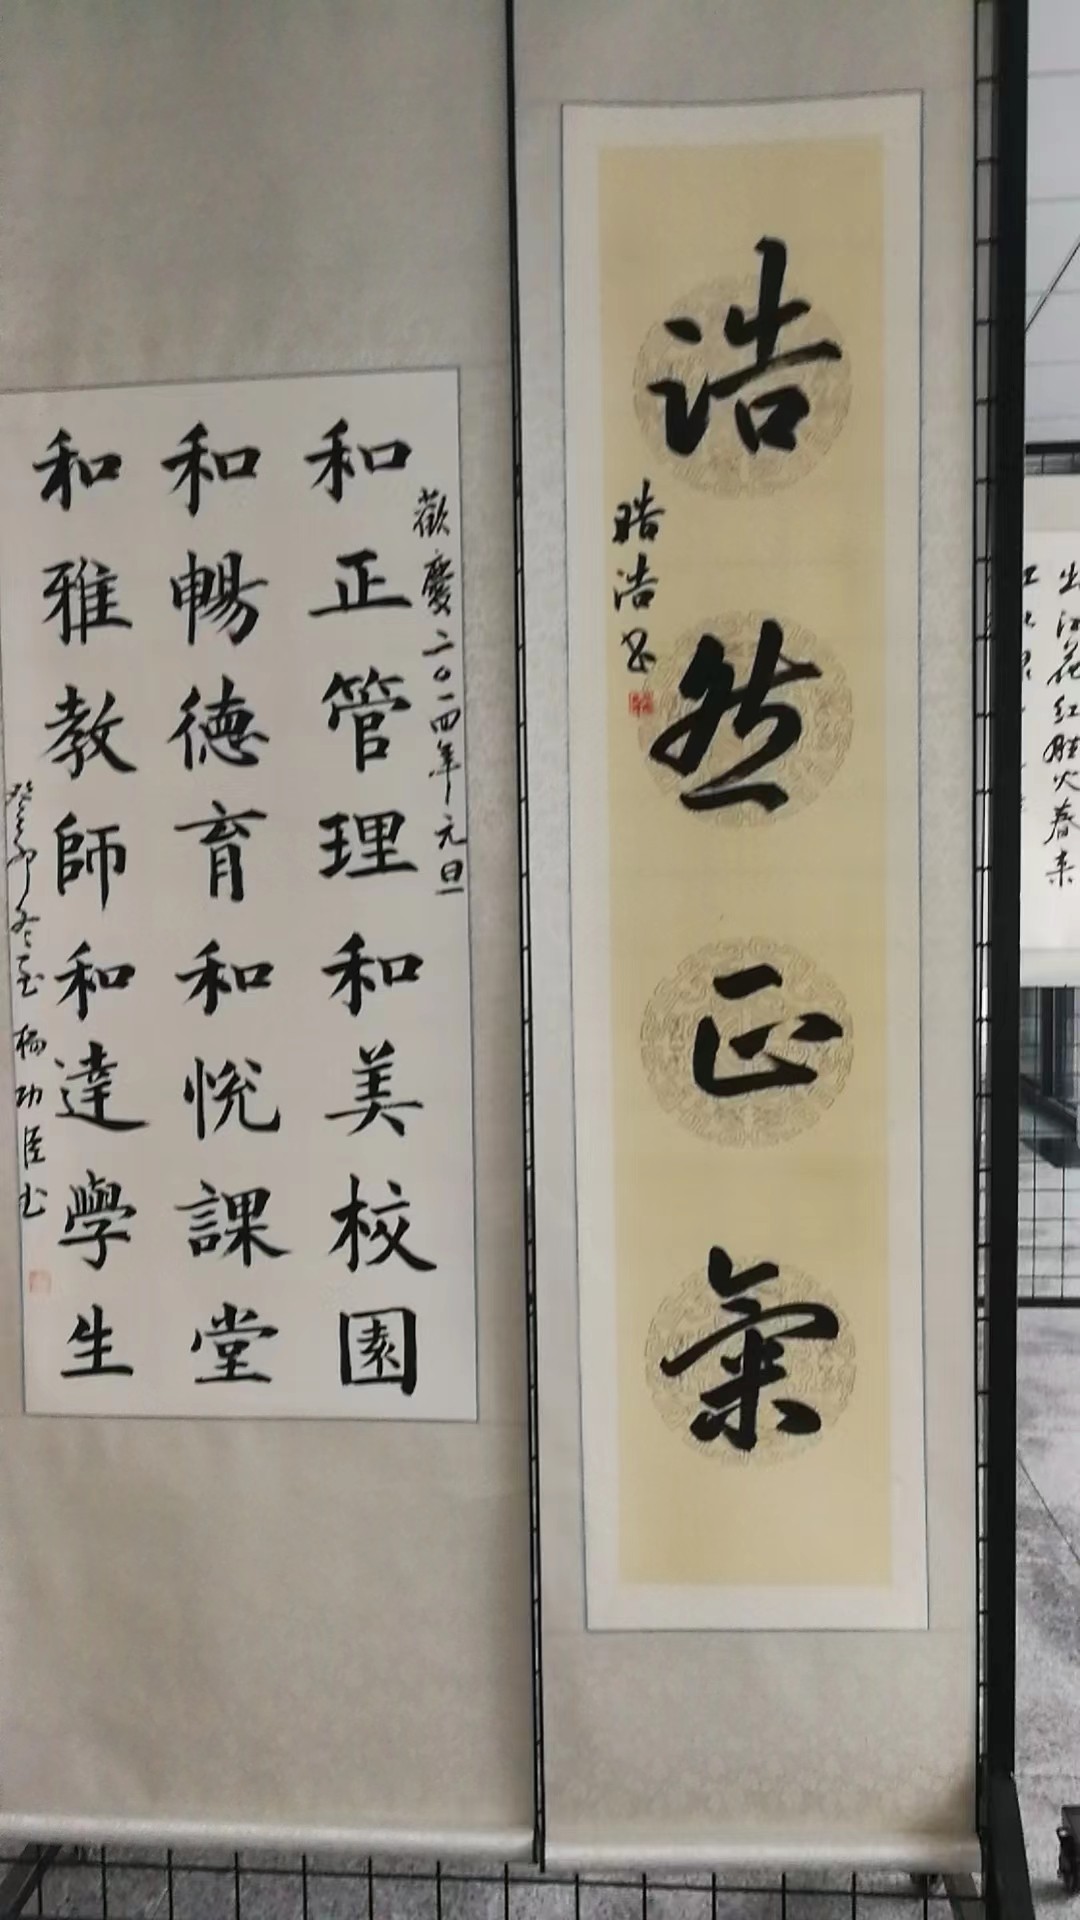 浩然正氣
皓浩书
歡慶二〇一四年元旦
和正管理和美校園
和暢德育和悦課堂
和雅教師和達學生
癸卯冬至楊功臣书
出江花红胜火春来